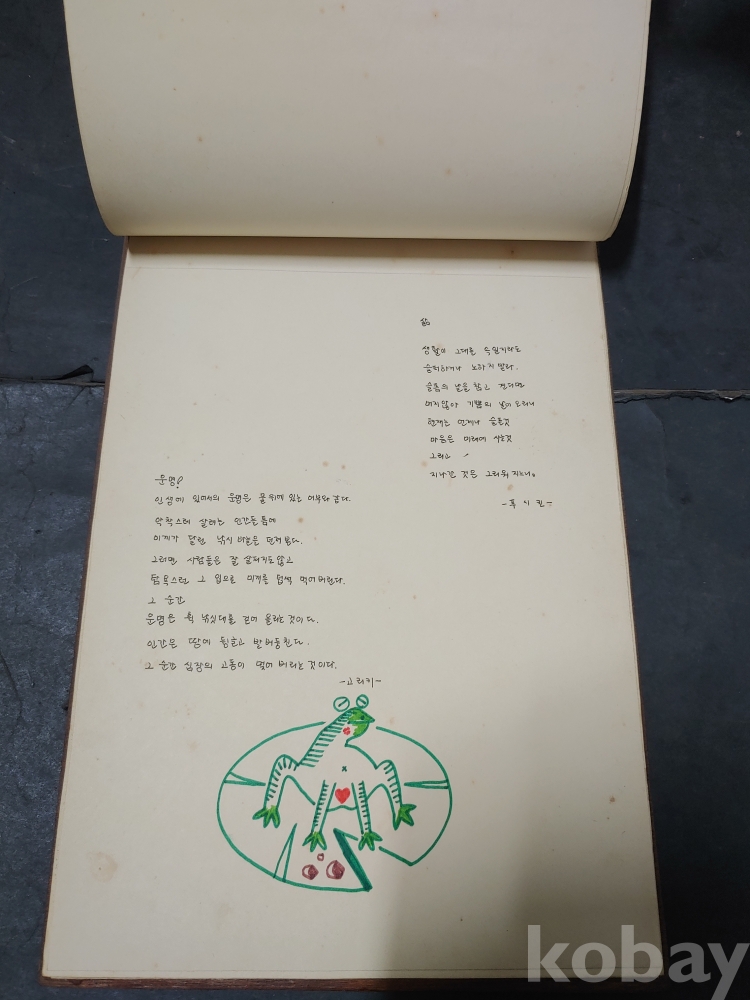 삶
생활이 그대를 속일지라도
슬퍼하거나 노하지 말라.
슬픔의 날을 참고 견디면
머지않아 기쁨의 날이 오리니
현재는 언제나 슬픈것
마음은 미래에 사는것
그리고
지나간 것은 그리워 지느니.
-푸시킨-
운명!
인생에 있어서의 운명은 물위에 있는 어부와 같다.
악착스레 살려는 인간들 틈에
미끼가 달린 낚시 바늘은 던져 진다.
그러면 사람들은 잘 살펴지도 않고
탐욕스런 그 입으로 미끼를 덥썩 먹어버린다.
그 순간
운명은 휙 낚싯대를 걷어 올리는 것이다.
인간은 땅에 뒹굴고 발버둥친다.
그 순간 심장의 고동이 멎어 버리는 것이다.
-고리키-
kobay